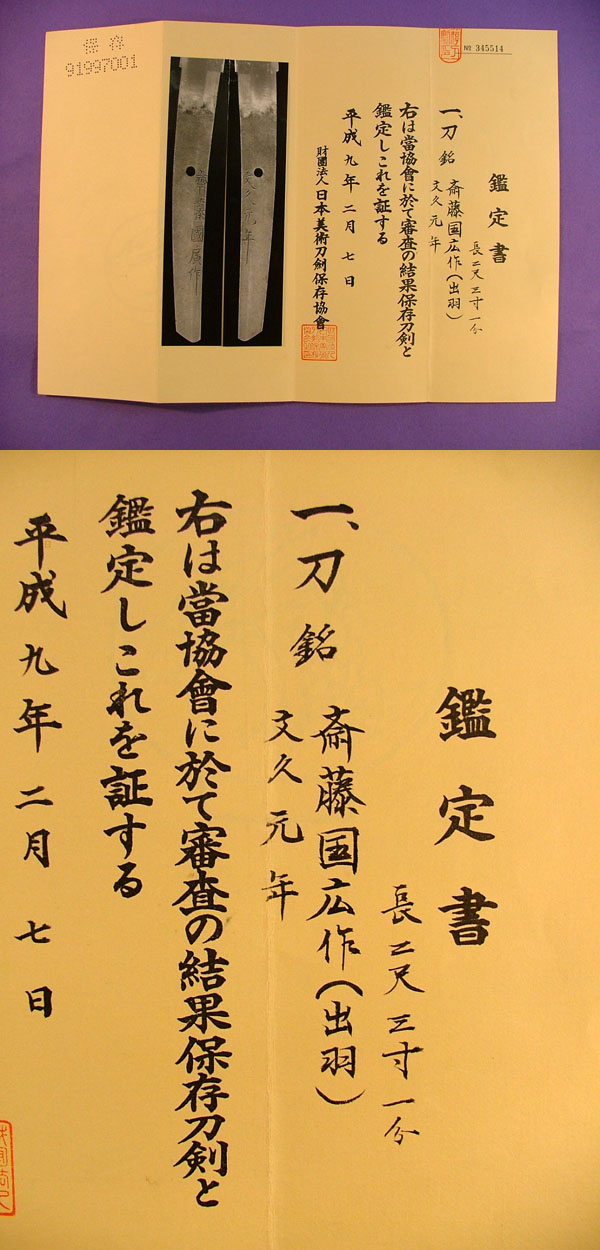 保存
91997001
№ 345514
鑑定書
長二尺三寸一分
一、刀 銘 斎藤国広作(出羽)
文久元年
右は當協會に於て審査の結果保存刀剣と
鑑定しこれを証する
平成九年二月七日
財團法人日本美術刀剣保存協會
齊藤國廣作
文久元年
鑑定書
長二尺三寸一分
一、刀 銘 斎藤国広作(出羽)
文久元年
右は當協會に於て審査の結果保存刀剣と
鑑定しこれを証する
平成九年二月七日